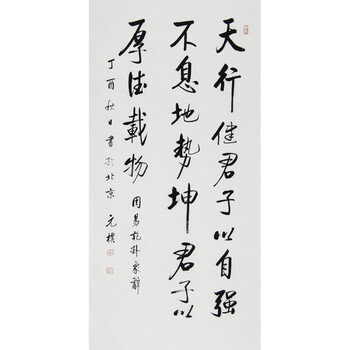 天行健君子以自强
不息地勢坤君子以
厚德載物
周易乾卦象辭
丁酉秋日書於北京 元樸